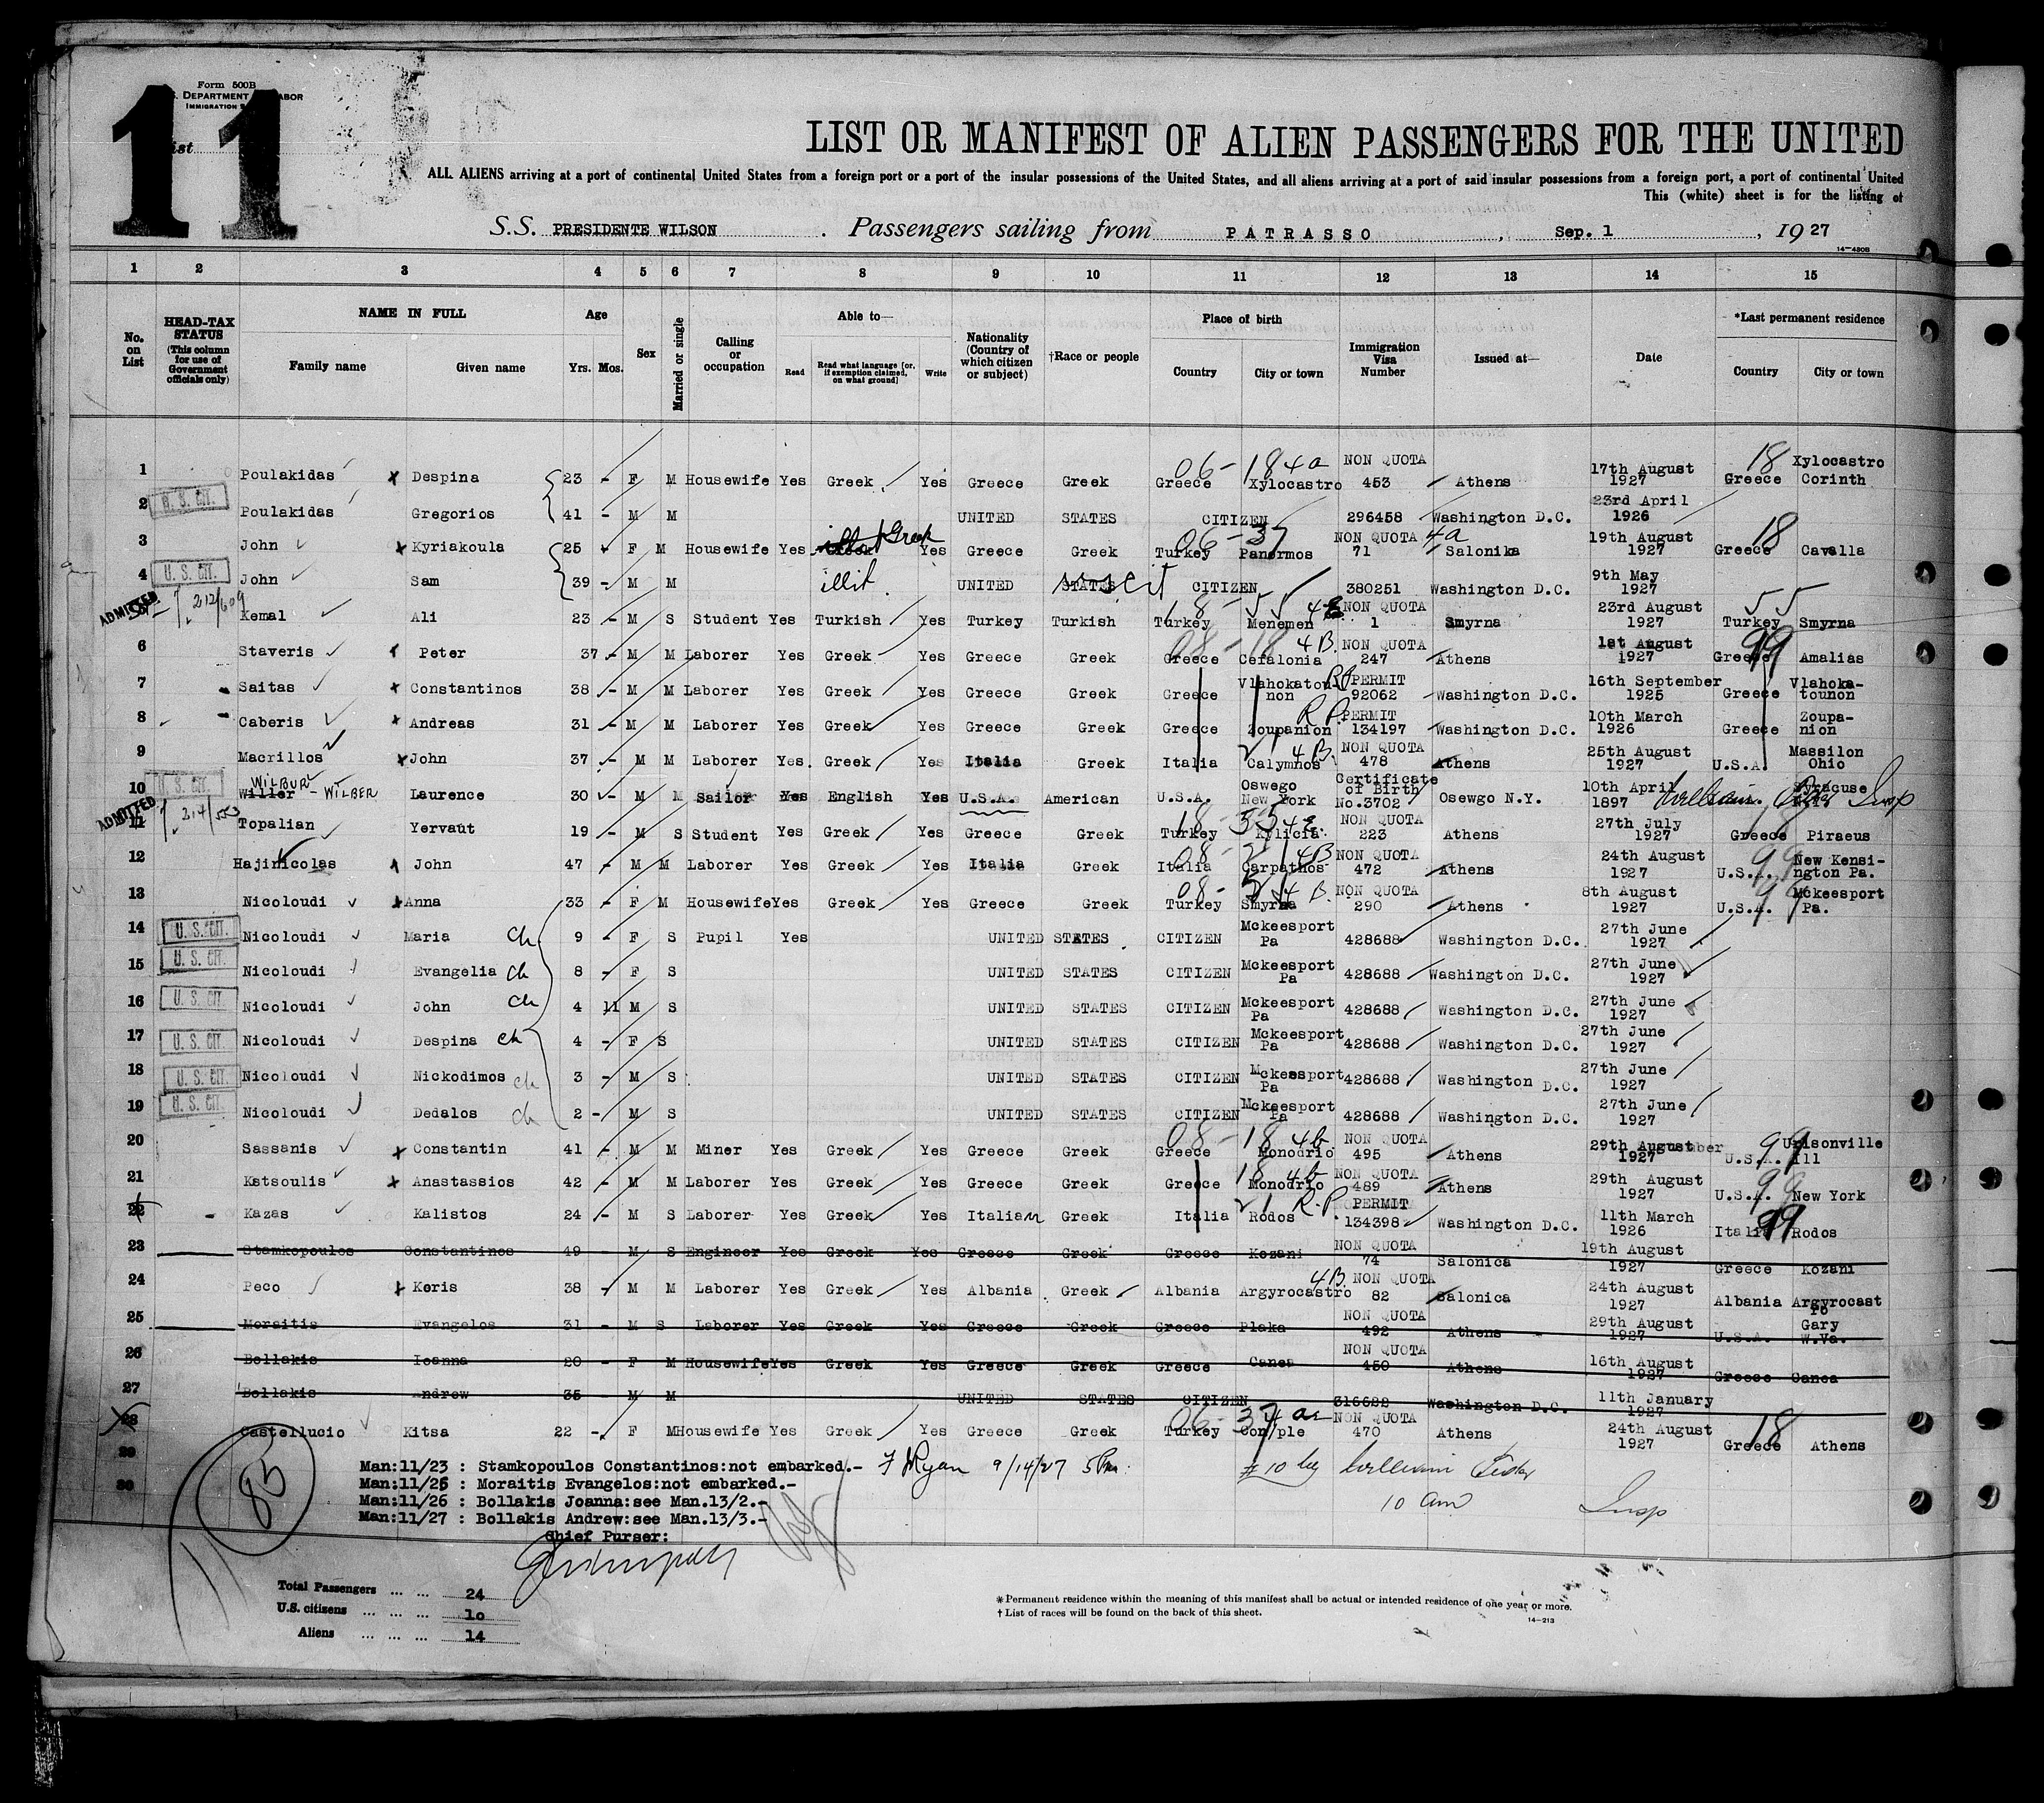 Form 500B
DEPARTMENT LABOR
IMMIGRATION
11
LIST OR MANIFEST OF ALIEN PASSENGERS FOR THE UNITED
ALL ALIENS arriving at a port of continental United States from a foreign port or a port of the insular possessions of the United States, and all aliens arriving at a port of said insular possessions from a foreign port, a port of continental United
This (white) sheet is for the listing of
S.S. PRESIDENTE WILSON. Passengers sailing from PATRASSO, Sep. 1, 1927
14-430B
1 2 3 4 5 6 7 8 9 10 11 12 13 14 15
No. on List HEAD-TAX STATUS (This column for use of Government officials only) NAME IN FULL Family name Given name Age Yrs. Mos. Sex Married or single Calling or occupation Able to— Read Read what language [or, if exemption claimed, on what ground] Write Nationality (Country of which citizen or subject) †Race or people Place of birth Country City or town Immigration Visa Number Issued at— Date *Last permanent residence Country City or town
1 Poulakidas Despina 23 - F M Housewife Yes Greek Yes Greece Greek 06-18 4a Greece Xylocastro NON QUOTA 453 Athens 17th August 1927 18 Greece Xylocastro Corinth
2 U.S. CIT. Poulakidas Gregorios 41 - M M UNITED STATES CITIZEN 296458 Washington D.C. 23rd April 1926
3 John Kyriakoula 25 - F M Housewife Yes Greek Yes Greece Greek 06-37 Turkey Panormos NON QUOTA 4a 71 Salonika 19th August 1927 18 Greece Cavalla
4 U.S. CIT. John Sam 39 - M M illit. UNITED STATES CITIZEN 380251 Washington D.C. 9th May 1927
ADMITTED 212/609 Kemal Ali 23 - M S Student Yes Turkish Yes Turkey Turkish 18-55 Turkey Menemen NON QUOTA 1 Smyrna 23rd August 1927 55 Turkey Smyrna
6 Staveris Peter 37 - M M Laborer Yes Greek Yes Greece Greek 08-18 4B Greece Cefalonia NON QUOTA 247 Athens 1st August 1927 99 Greece Amalias
7 Saitas Constantinos 38 - M M Laborer Yes Greek Yes Greece Greek Greece Vlahokatounon RP PERMIT 92062 Washington D.C. 16th September 1925 Greece Vlahokatounon
8 Caberis Andreas 31 - M M Laborer Yes Greek Yes Greece Greek Greece Zoupanion R.P. PERMIT 134197 Washington D.C. 10th March 1926 Greece Zoupanion
9 Macrillos John 37 - M M Laborer Yes Greek Yes Italia Greek Italia Calymnos 21 4B NON QUOTA 478 Athens 25th August 1927 U.S.A. Massilon Ohio
10 U.S. CIT. WILBUR Willer - WILBER Laurence 30 - M M Sailor Yes English Yes U.S.A. American U.S.A. Oswego New York Certificate of Birth No.3702 Osewgo N.Y. 10th April 1897 Syracuse Insp
11 ADMITTED 214/ Topalian Yervaut 19 - M S Student Yes Greek Yes Greece Greek 18-55 Turkey Kylicia NON QUOTA 223 Athens 27th July 1927 Greece Piraeus
12 Hajinicolas John 47 - M M Laborer Yes Greek Yes Italia Greek 08-21 4B Italia Carpathos NON QUOTA 472 Athens 24th August 1927 99 U.S.A. New Kensington Pa.
13 Nicoloudi Anna 33 - F M Housewife Yes Greek Yes Greece Greek 08- 4B Turkey Smyrna NON QUOTA 290 Athens 8th August 1927 99 U.S.A. Mckeesport Pa.
14 U.S. CIT. Nicoloudi Maria ch 9 - F S Pupil Yes UNITED STATES CITIZEN Mckeesport Pa 428688 Washington D.C. 27th June 1927
15 U.S. CIT. Nicoloudi Evangelia ch 8 - F S UNITED STATES CITIZEN Mckeesport Pa 428688 Washington D.C. 27th June 1927
16 U.S. CIT. Nicoloudi John ch 4 11 M S UNITED STATES CITIZEN Mckeesport Pa 428688 Washington D.C. 27th June 1927
17 U.S. CIT. Nicoloudi Despina ch 4 - F S UNITED STATES CITIZEN Mckeesport Pa 428688 Washington D.C. 27th June 1927
18 U.S. CIT. Nicoloudi Nickodimos ch 3 - M S UNITED STATES CITIZEN Mckeesport Pa 428688 Washington D.C. 27th June 1927
19 U.S. CIT. Nicoloudi Dedalos ch 2 - M S UNITED STATES CITIZEN Mckeesport Pa 428688 Washington D.C. 27th June 1927
20 Sassanis Constantin 41 - M M Miner Yes Greek Yes Greece Greek 08-18 4b Greece Monodrio NON QUOTA 495 Athens 29th August 1927 99 U.S.A. Ill
21 Katsoulis Anastassios 42 - M M Laborer Yes Greek Yes Greece Greek 18 4b Greece Monodrio NON QUOTA 489 Athens 29th August 1927 99 U.S.A. New York
22 Kazas Kalistos 24 - M S Laborer Yes Greek Yes Italian Greek Italia Rodos 21 R.P. PERMIT 134398 Washington D.C. 11th March 1926 99 Italia Rodos
23 Stamkopoulos Constantinos 49 - M S Engineer Yes Greek Yes Greece Greek Greece Kozani NON QUOTA 74 Salonica 19th August 1927 Greece Kozani
24 Peco Keris 38 - M M Laborer Yes Greek Yes Albania Greek Albania Argyrocastro 4B NON QUOTA 82 Salonica 24th August 1927 Albania Argyrocastro
25 Moraitis Evangelos 31 - M S Laborer Yes Greek Yes Greece Greek Greece Plaka NON QUOTA 492 Athens 29th August 1927 U.S.A. Gary W.Va.
26 Bollakis Ioanna 20 - F M Housewife Yes Greek Yes Greece Greek Greece Canea NON QUOTA 450 Athens 16th August 1927 Greece Canea
27 Bollakis Andrew 35 - M M UNITED STATES CITIZEN 316622 Washington D.C. 11th January 1927
28 Castellucio Kitsa 22 - F M Housewife Yes Greek Yes Greece Greek 06-37 4a Turkey Con/ple NON QUOTA 470 Athens 24th August 1927 18 Greece Athens
29
30
Man:11/23 : Stamkopoulos Constantinos:not embarked.- F Ryan 9/14/27 5 Pm. #10 by William
Man:11/25 : Moraitis Evangelos:not embarked.-
Man:11/26 : Bollakis Joanna:see Man.13/2.- 10 am Insp
Man:11/27 : Bollakis Andrew:see Man.13/3.-
Chief Purser:
85
Total Passengers ... ... 24
U.S. citizens ... ... ... 10
Aliens ... ... ... 14
*Permanent residence within the meaning of this manifest shall be actual or intended residence of one year or more.
†List of races will be found on the back of this sheet.
14-213